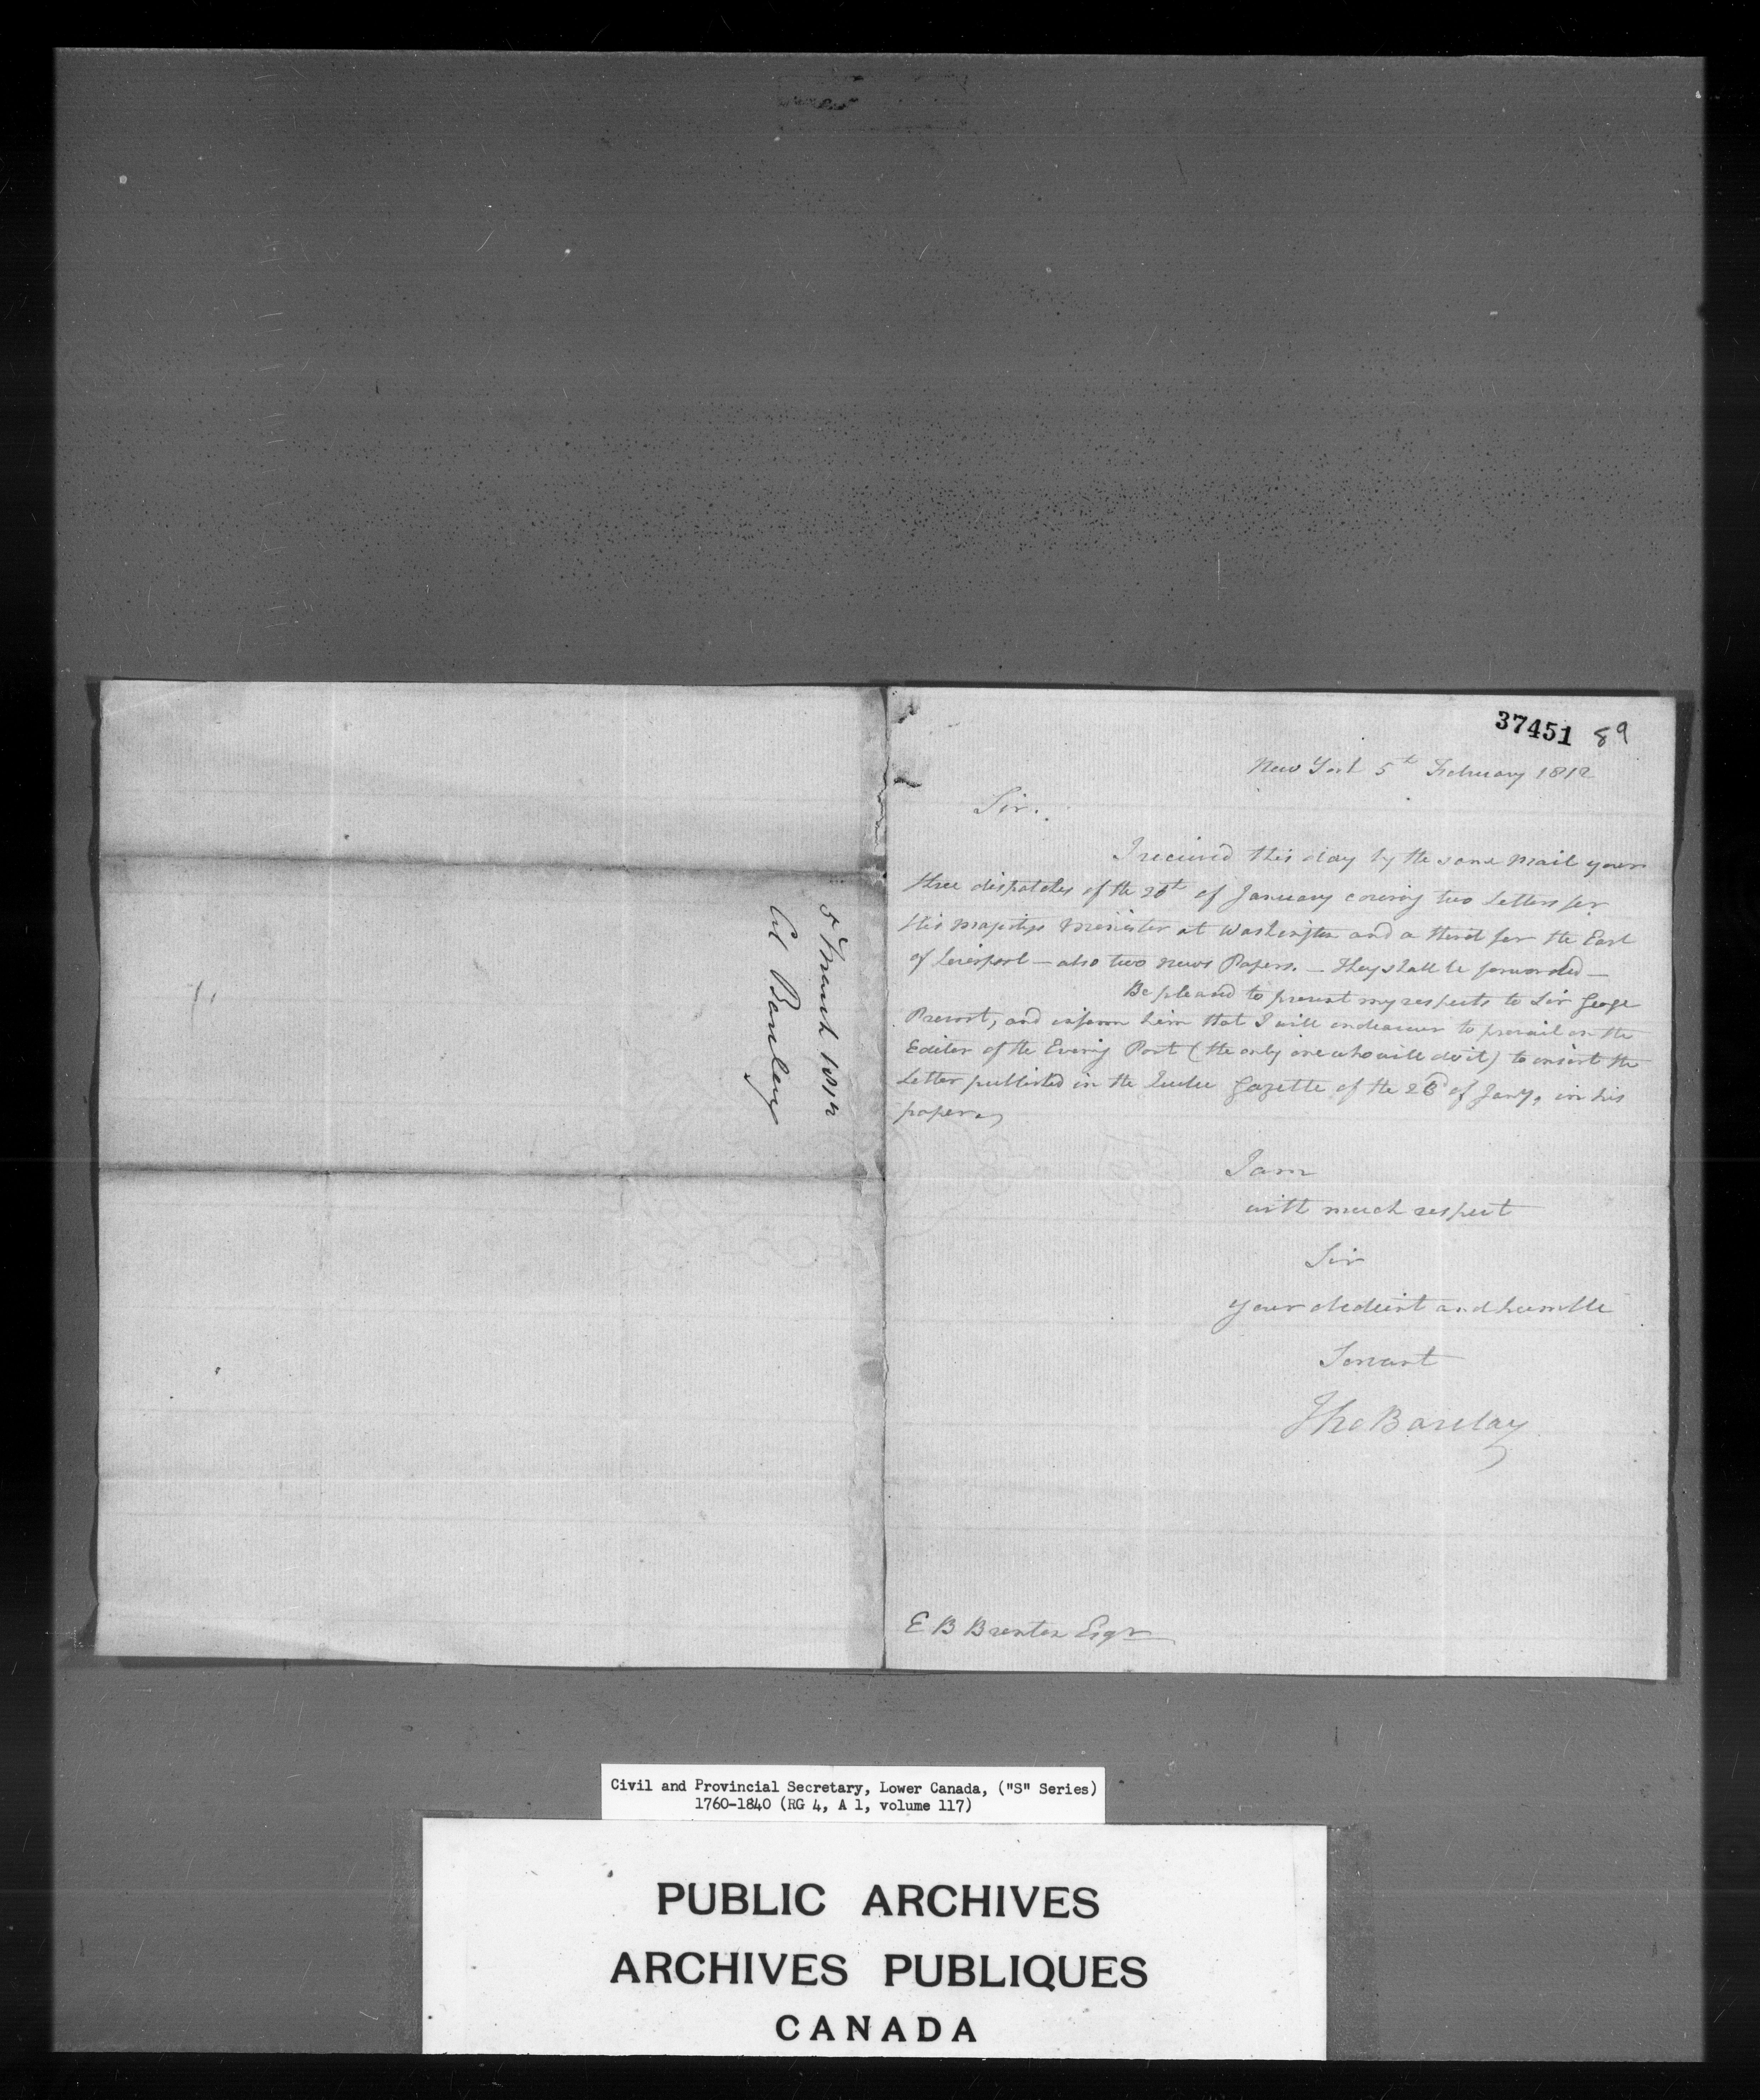 37451 89
New York 5th February 1812
Sir.
I recieved this day by the same Mail your
three dispatches of the 26th of January covering two Letters for
His Majestys Minister at Washington and a third for the Earl
of Liverpool — also two News Papers. — They shall be forwarded —
Be pleased to present my respects to Sir George
Prevost, and inform him that I will endeavour to prevail on the
Editor of the Evening Post (the only one who will do it) to insert the
Letter published in the Quebec Gazette of the 23d of Jany, in his
paper,
I am
with much respect
Sir
your obedient and humble
Servant
Tho Barclay
E B Brenton Esqr
5 March 1812
Col Barclay
Civil and Provincial Secretary, Lower Canada, ("S" Series)
1760-1840 (RG 4, A 1, volume 117)
PUBLIC ARCHIVES
ARCHIVES PUBLIQUES
CANADA